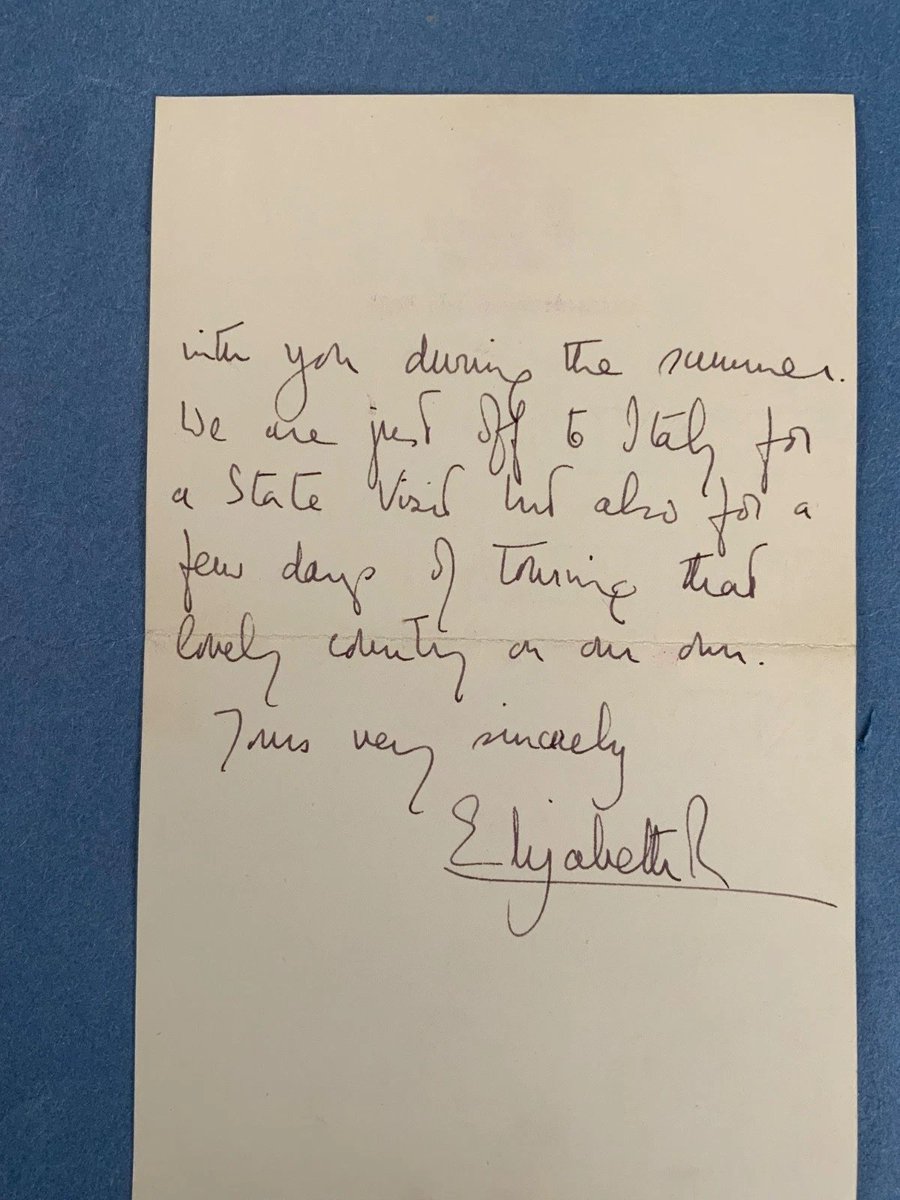 with you during the summer.
We are just off to Italy for
a State Visit but also for a
few days of touring that
lovely country on our own.
Yours very sincerely
Elizabeth R